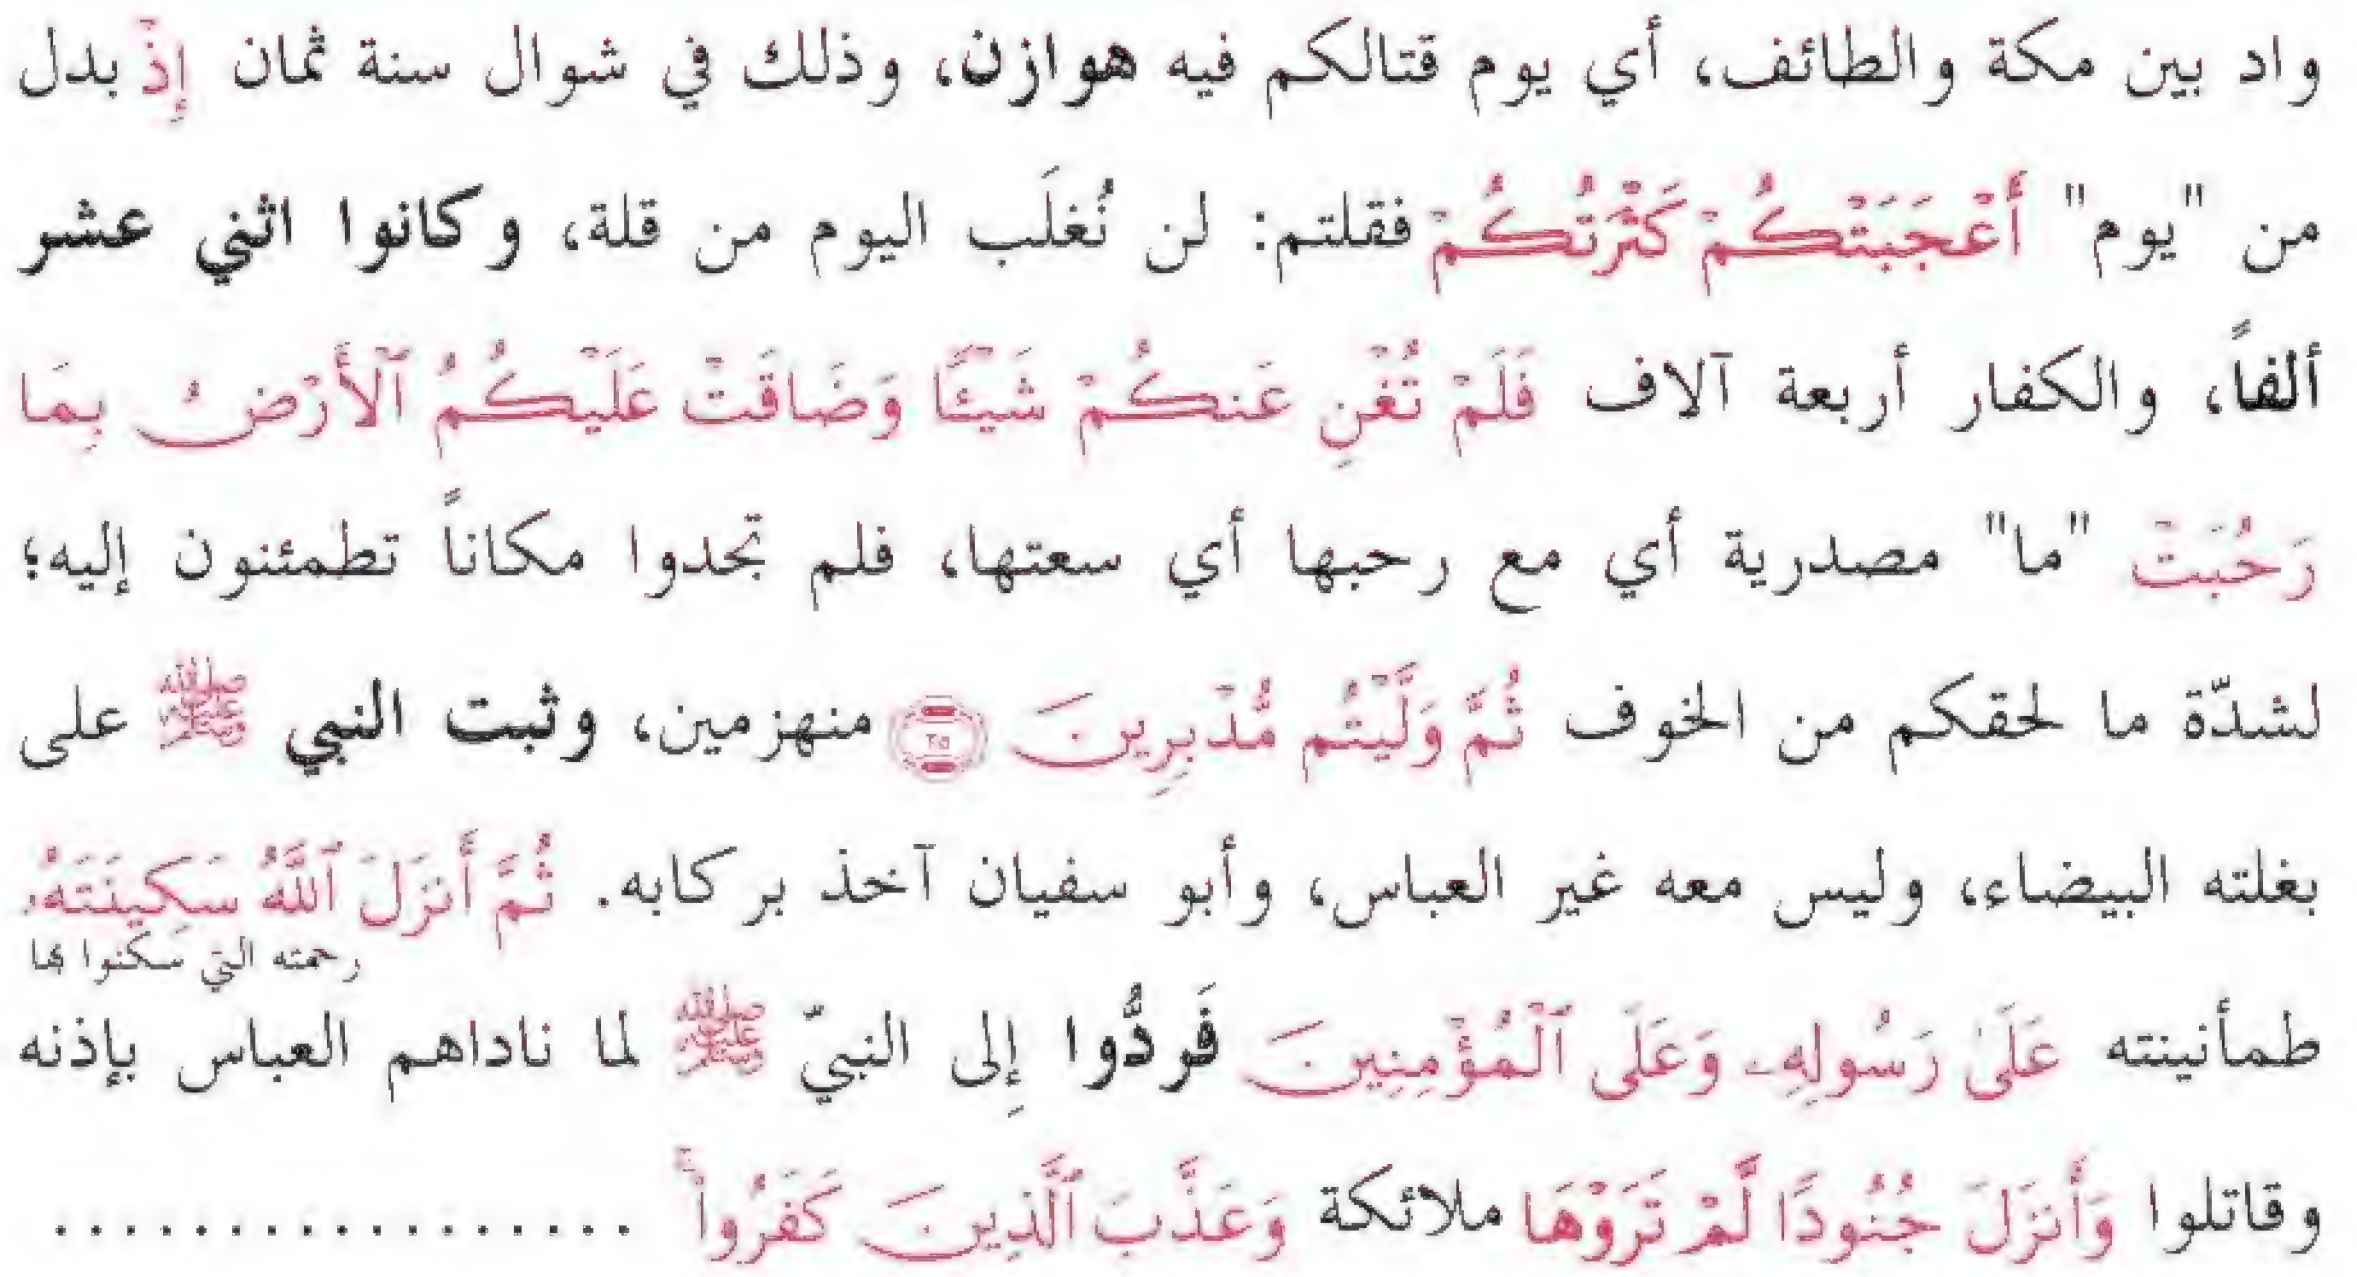 واد بين مكة والطائف، أي يوم قتالكم فيه هوازن، وذلك في شوال سنة ثمان إِذْ بدل
من "يوم" أَعْجَبَتْكُمْ كَثْرَتُكُمْ فقلتم: لن نُغلَب اليوم من قلة، وكانوا اثني عشر
ألفاً، والكفار أربعة آلاف فَلَمْ تُغْنِ عَنكُمْ شَيْـًٔا وَضَاقَتْ عَلَيْكُمُ ٱلْأَرْضُ بِمَا
رَحُبَتْ "ما" مصدرية أي مع رحبها أي سعتها، فلم تجدوا مكاناً تطمئنون إليه؛
لشدّة ما لحقكم من الخوف ثُمَّ وَلَّيْتُم مُّدْبِرِينَ ۝٢٥ منهزمين، وثبت النبي ﷺ على
بغلته البيضاء، وليس معه غير العباس، وأبو سفيان آخذ بركابه. ثُمَّ أَنزَلَ ٱللَّهُ سَكِينَتَهُۥ
رحمته التي سكنوا بها
طمأنينته عَلَىٰ رَسُولِهِۦ وَعَلَى ٱلْمُؤْمِنِينَ فَردُّوا إِلى النبيّ ﷺ لما ناداهم العباس بإذنه
وقاتلوا وَأَنزَلَ جُنُودًا لَّمْ تَرَوْهَا ملائكة وَعَذَّبَ ٱلَّذِينَ كَفَرُوا۟ .................